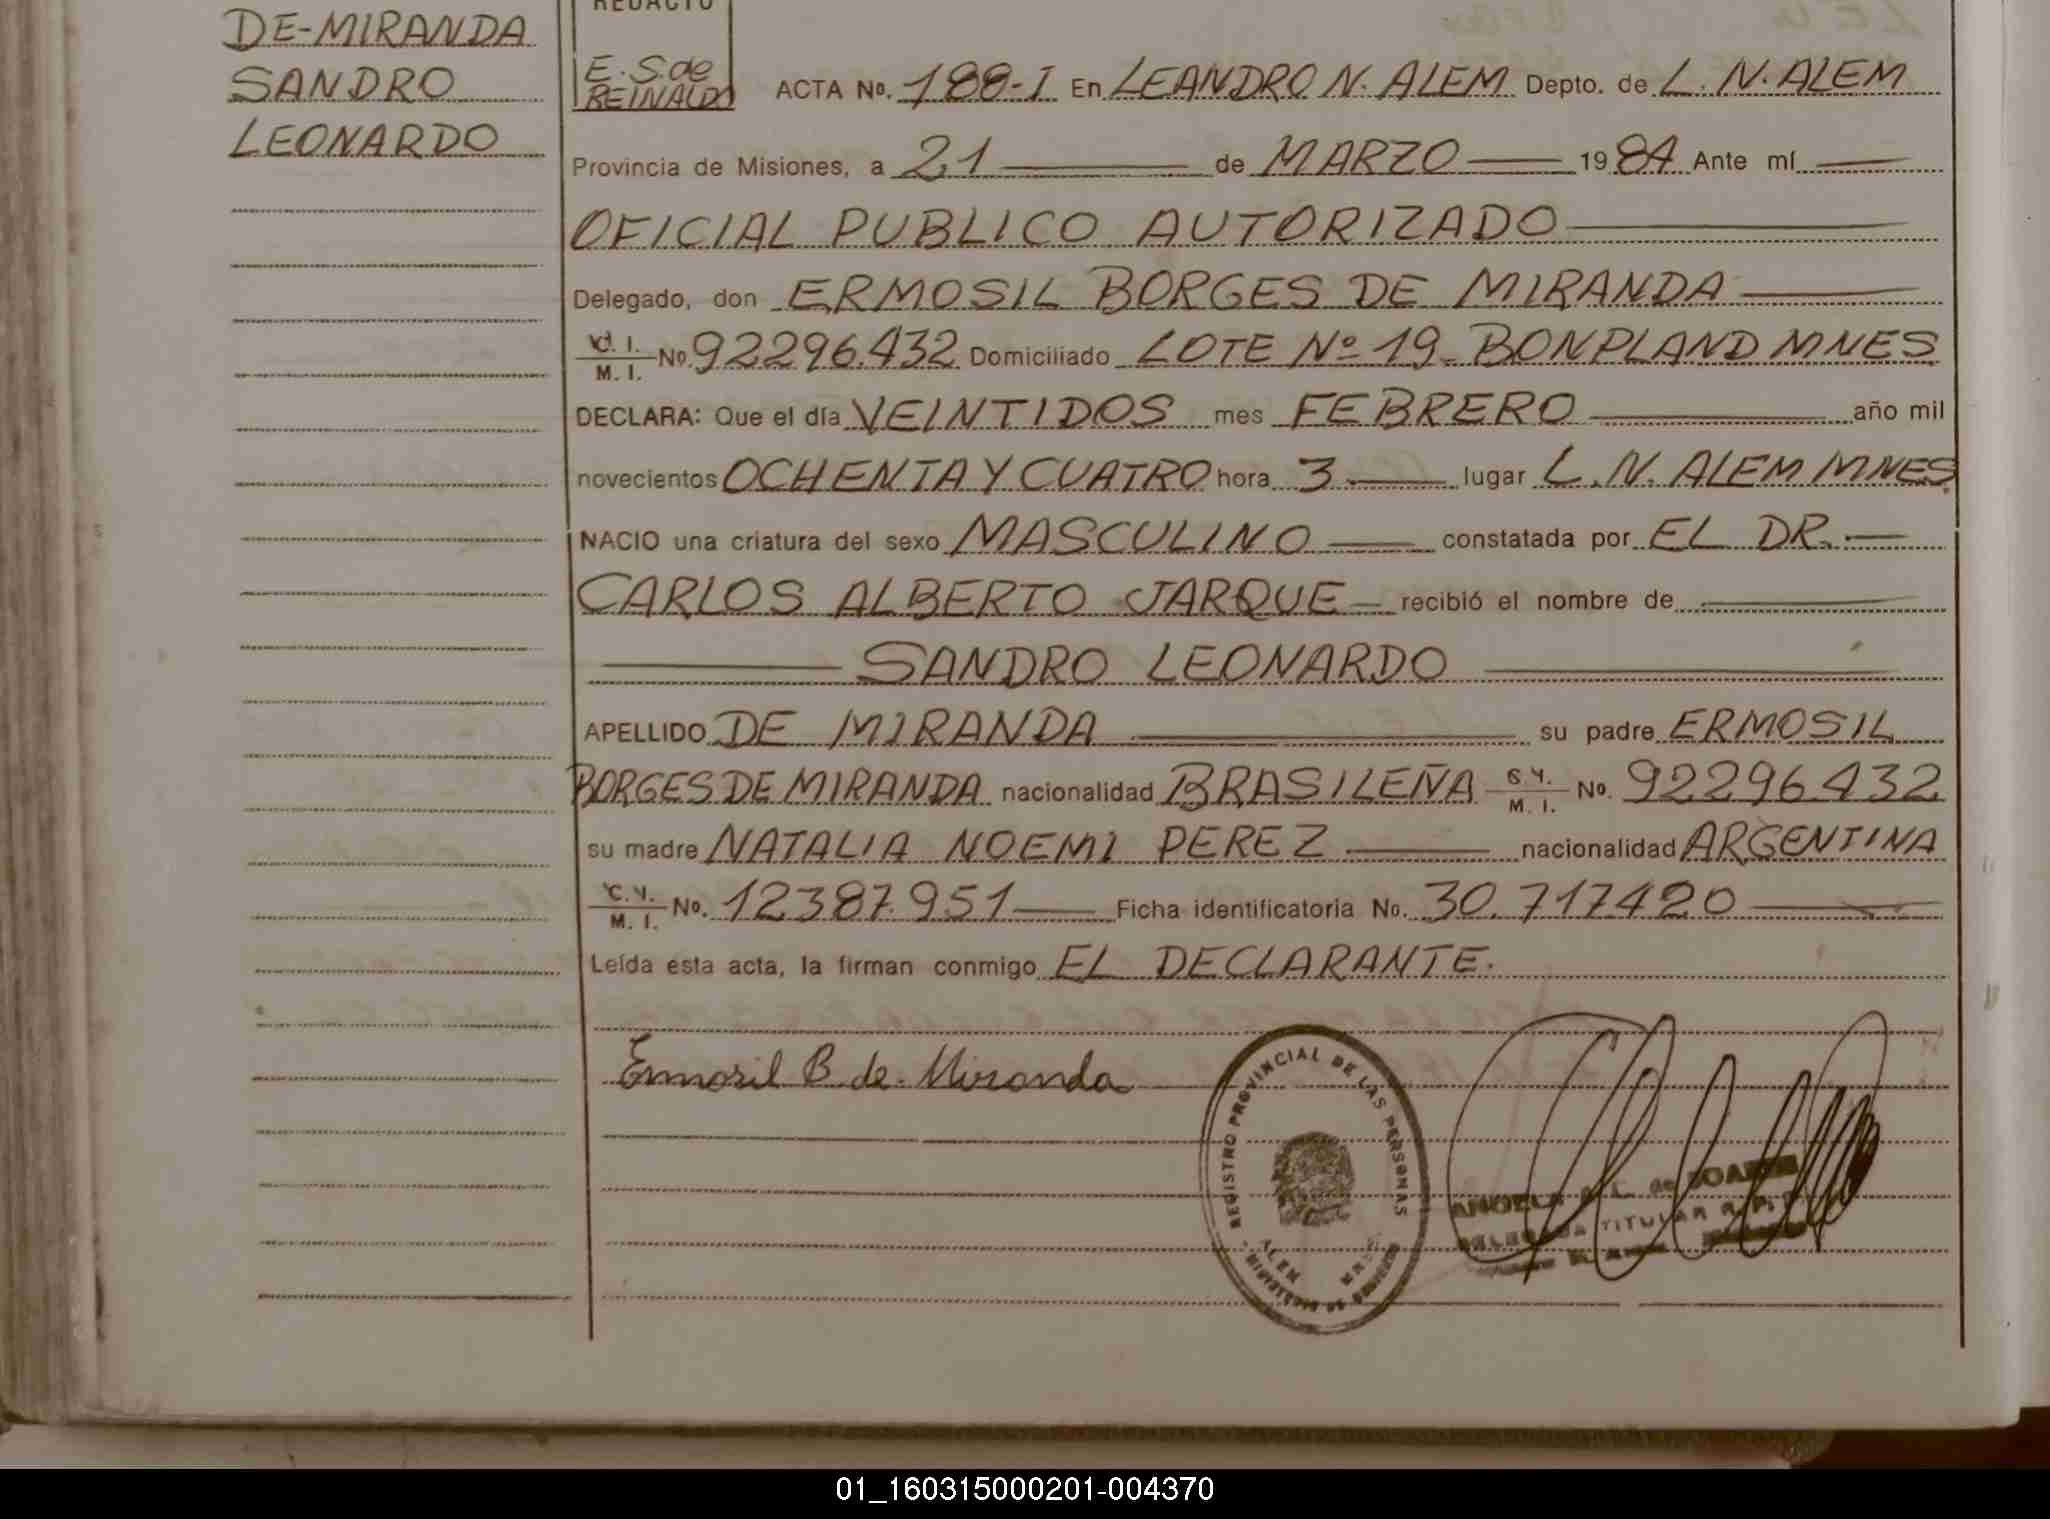 DE-MIRANDA
SANDRO
LEONARDO
REDACTO
E. S. de
REINALDO
ACTA No. 188-I En LEANDRO N. ALEM Depto. de L. N. ALEM
Provincia de Misiones, a 21 de MARZO 1984 Ante mí
OFICIAL PUBLICO AUTORIZADO
Delegado, don ERMOSIL BORGES DE MIRANDA
C. I. M. I. No. 92296.432 Domiciliado LOTE Nº 19 BONPLAND MNES
DECLARA: Que el día VEINTIDOS mes FEBRERO año mil
novecientos OCHENTA Y CUATRO hora 3 lugar L. N. ALEM MNES
NACIO una criatura del sexo MASCULINO constatada por EL DR.
CARLOS ALBERTO JARQUE recibió el nombre de
SANDRO LEONARDO
APELLIDO DE MIRANDA su padre ERMOSIL
BORGES DE MIRANDA nacionalidad BRASILEÑA M. I. No. 92296.432
su madre NATALIA NOEMI PEREZ nacionalidad ARGENTINA
M. I. No. 12387.951 Ficha identificatoria No. 30.717.420
Leída esta acta, la firman conmigo EL DECLARANTE.
Ermosil B de Miranda
REGISTRO PROVINCIAL DE LAS PERSONAS
ALEM
ANGELA
TITULAR R. P.
01_160315000201-004370